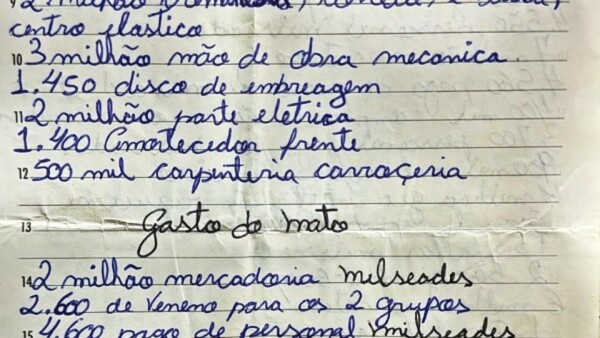 2 milhão
centro elastico
10 3 milhão mão de obra mecanica.
1.450 disco de embreagem
11 2 milhão parte eletrica
1.400 Amortecedor frente
12 500 mil carpenteria carroçeria
13 Gasto do mato
14 2 milhão mercadoria milseades
2.600 de veneno para os 2 grupos
15 4.600 pago de personal milseades